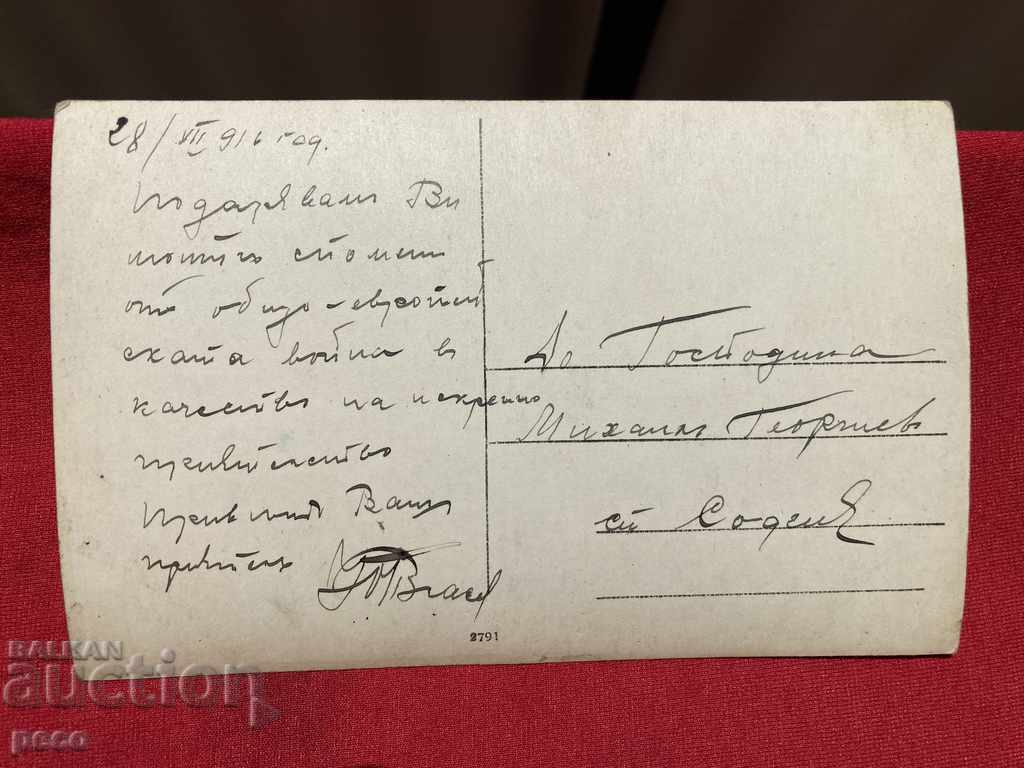 28/VII 916 год.
Подарявамъ Ви
моятъ спомен
отъ общо-европей
ската война в
качество на искренно
приятелство
Вашъ
приятель
До Господина
Михаилъ Георгиевъ
София
2791
BALKAN
auction
peco